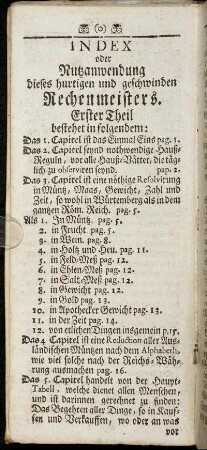 (o)
INDEX
oder
Nutzanwendung
dieses hurtigen und geschwinden
Rechenmeisters.
Erster Theil
bestehet in folgendem:
Das 1. Capitel ist das Einmal Eins pag. 1.
Das 2. Capitel seynd nothwendige Hauß-
Reguln, vor alle Hauß-Vätter, die täg-
lich zu observiren seynd. pap. 2.
Das 3. Capitel ist eine nöthige Resolvirung
in Müntz, Maas, Gewicht, Zahl und
Zeit, so wohl in Würtemberg als in dem
gantzen Röm. Reich. pag. 5.
Als 1. In Müntz. pag. 5.
2. in Frucht pag. 5.
3. in Wein. pag. 8.
4. in Holtz und Heu. pag. 11.
5. in Feld-Meß pag. 12.
6. in Ehlen-Meß pag. 12.
7. in Saltz-Meß pag. 12.
8. in Gewicht pag. 12.
9. in Gold pag. 13.
10. in Apothecker Gewicht pag. 13.
11. in der Zeit pag. 14.
12. von etlichen Dingen insgemein p. 15.
Das 4. Capitel ist eine Reduction aller Aus-
ländischen Müntzen nach dem Alphabeth,
wie viel solche nach der Reichs-Wäh-
rung ausmachen pag. 16.
Das 5. Capitel handelt von der Haupt-
Tabell, welche dienet allen Menschen,
und ist darinnen gerechnet zu finden:
Das Begehren aller Dinge, so in Kauf-
fen und Verkauffen, wo oder an was
vor